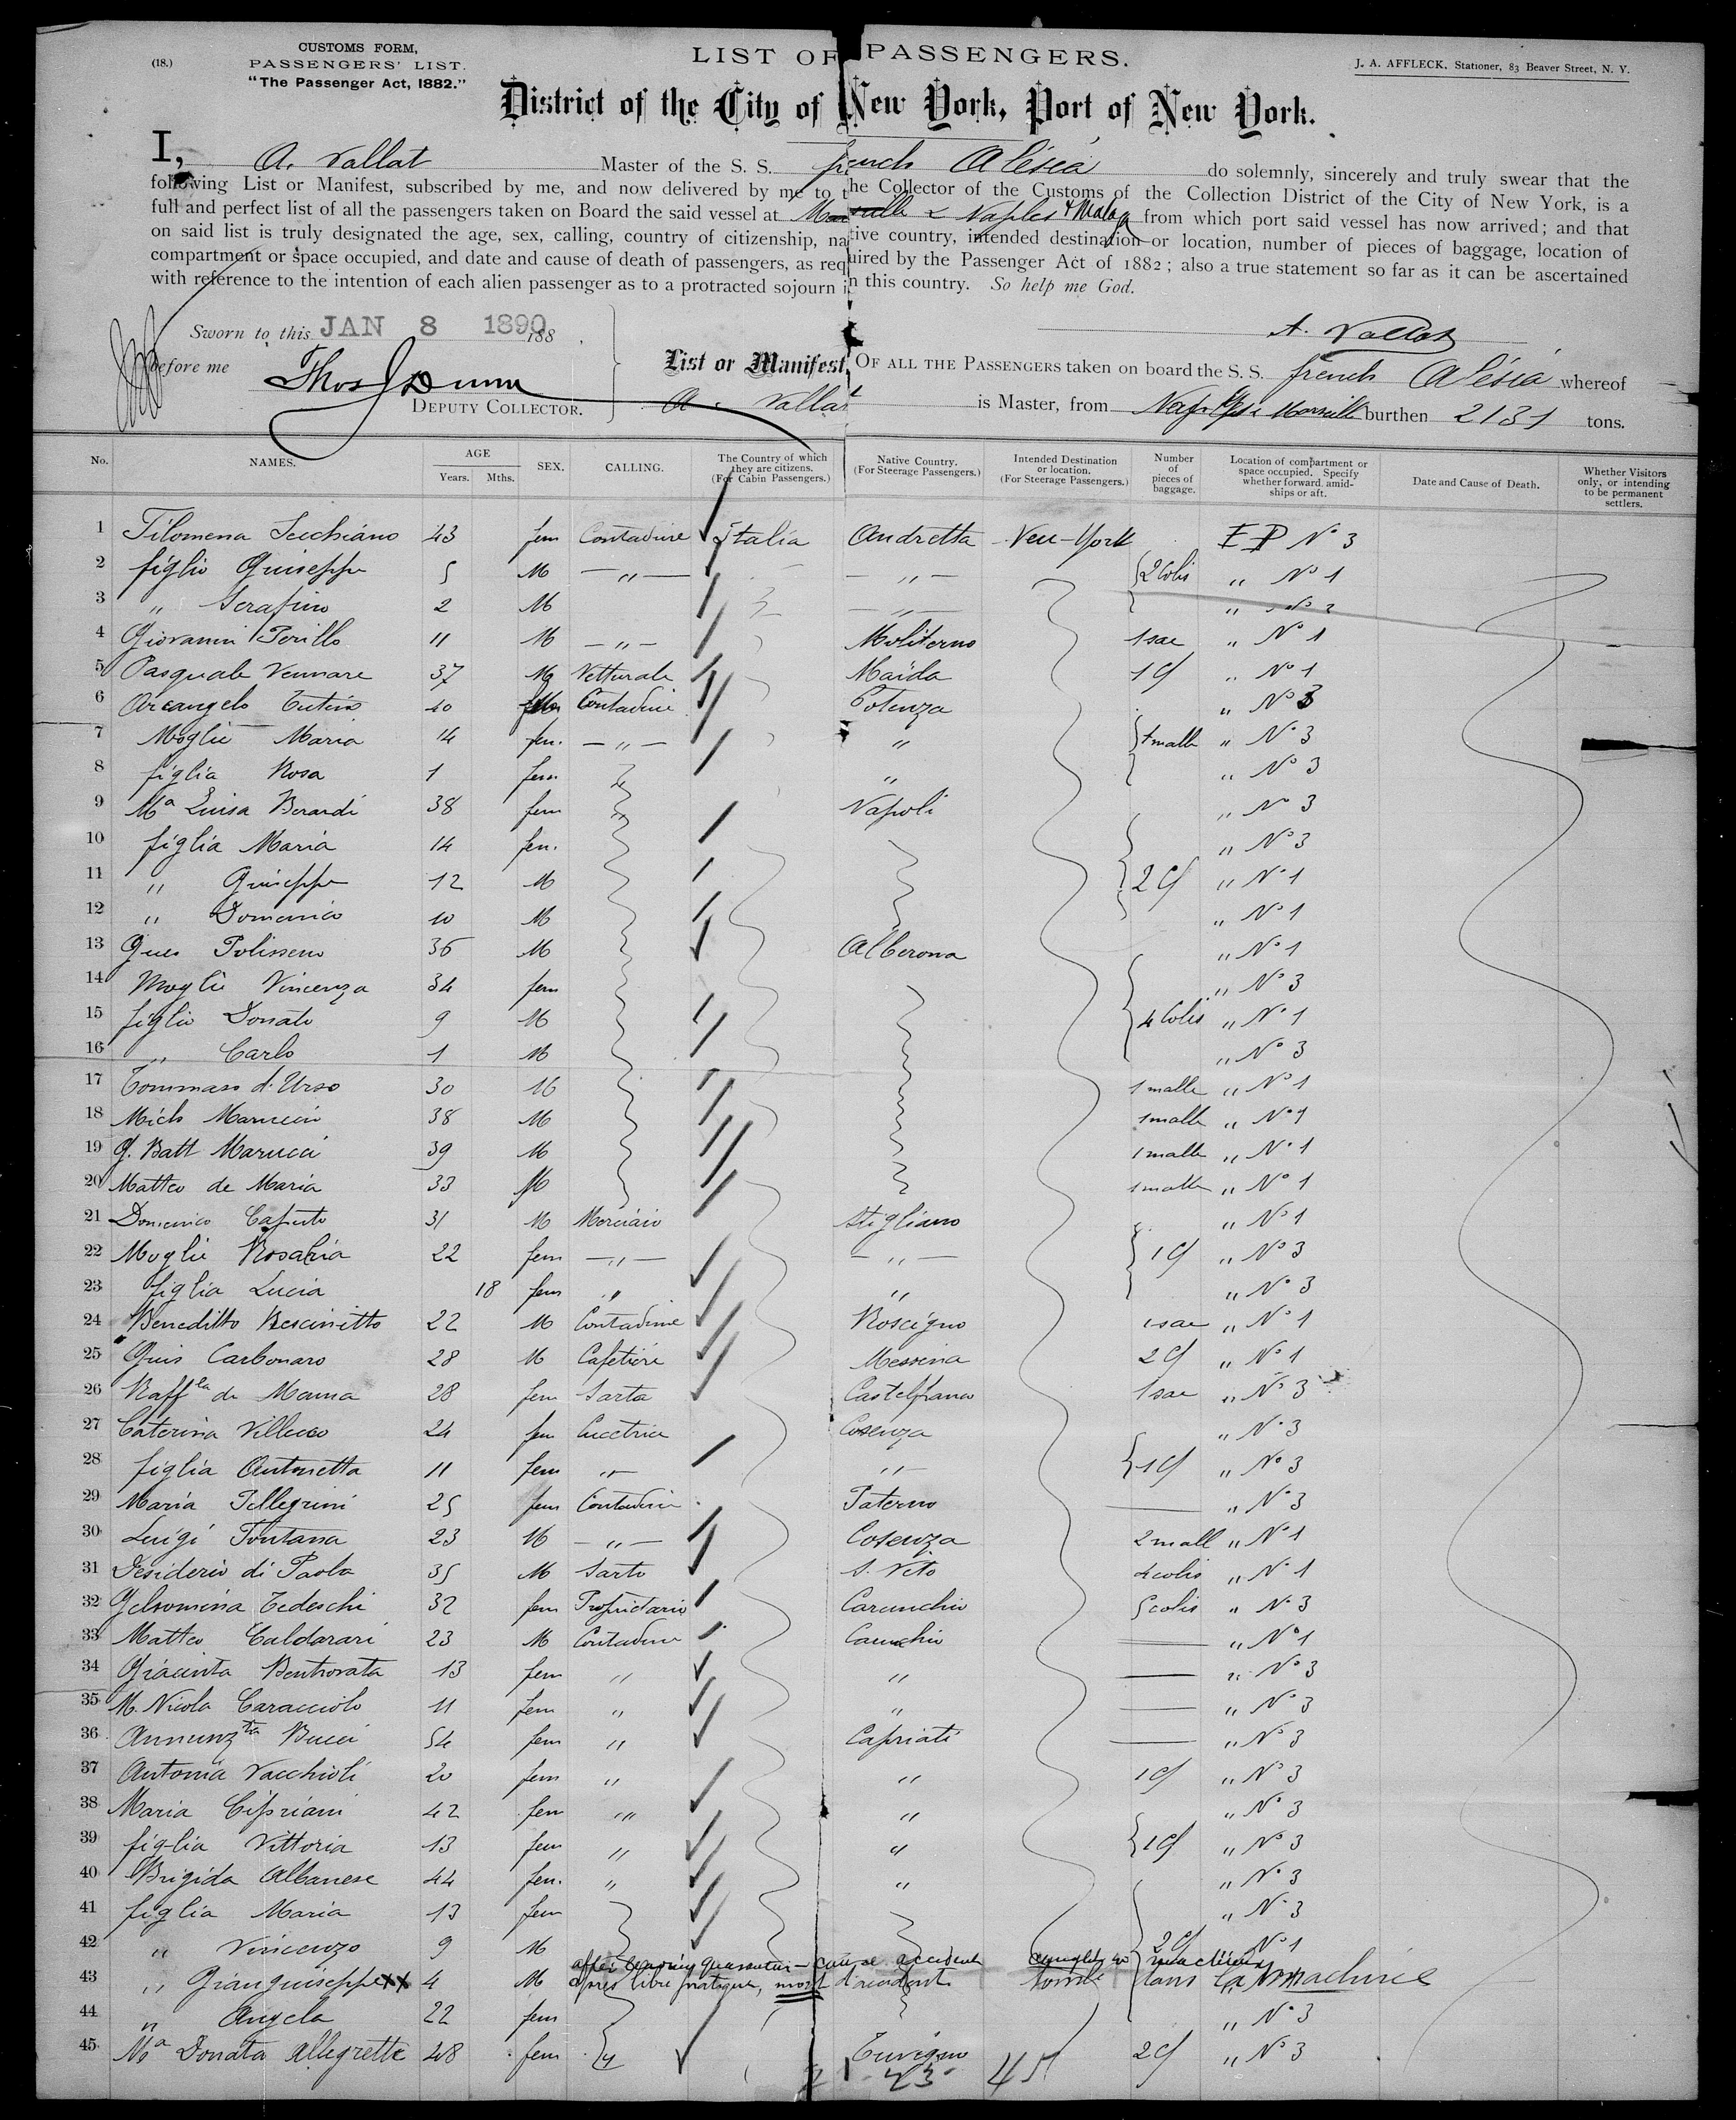 (18.)
CUSTOMS FORM,
PASSENGERS' LIST.
"The Passenger Act, 1882."
LIST OF PASSENGERS.
J. A. AFFLECK, Stationer, 83 Beaver Street, N. Y.
District of the City of New York, Port of New York.
I, A. Vallat Master of the S. S. french Alésia do solemnly, sincerely and truly swear that the
following List or Manifest, subscribed by me, and now delivered by me to the Collector of the Customs of the Collection District of the City of New York, is a
full and perfect list of all the passengers taken on Board the said vessel at Marseille & Naples & Malaga from which port said vessel has now arrived; and that
on said list is truly designated the age, sex, calling, country of citizenship, native country, intended destination or location, number of pieces of baggage, location of
compartment or space occupied, and date and cause of death of passengers, as required by the Passenger Act of 1882; also a true statement so far as it can be ascertained
with reference to the intention of each alien passenger as to a protracted sojourn in this country. So help me God.
Sworn to this JAN 8 1890 188
A. Vallat
before me Thos J Dunn
DEPUTY COLLECTOR.
List or Manifest, OF ALL THE PASSENGERS taken on board the S. S. french Alésia whereof
A. Vallat is Master, from Marseille burthen 2131 tons.
No. NAMES. AGE Years. Mths. SEX. CALLING. The Country of which they are citizens. (For Cabin Passengers.) Native Country. (For Steerage Passengers.) Intended Destination or location. (For Steerage Passengers.) Number of pieces of baggage. Location of compartment or space occupied. Specify whether forward, amidships or aft. Date and Cause of Death. Whether Visitors only, or intending to be permanent settlers.
1 Filomena 43 fem Contadine Italia Andretta New-York EP No 3
2 figlio Guiseppe 5 M —"— —"— 2 Colis " No 1
3 " Serafino 2 M —"— "
4 Giovanni Perillo 11 M —"— Moliterno 1 sac " No 1
5 Pasquale Vennare 37 M Vetturale Maida 1 Cf " No 1
6 Arcangelo Cutino 40 Contadine Potenza " No 3
7 Moglie Maria 14 fem. —"— " 1 malle " No 3
8 figlia Rosa 1 fem " " No 3
9 Ma Luisa Berardi 38 fem Napoli " No 3
10 figlia Maria 14 fem. " No 3
11 " Guiseppe 12 M 2 Cf " No 1
12 " Domenico 10 M " No 1
13 Polisseno M Alberona " No 1
14 Moglie Vincenza 34 fem " No 3
15 figlio Donato 9 M 4 Colis " No 1
16 " Carlo 1 M " No 3
17 Tommaso d'Urso 30 M 1 malle " No 1
18 Mich Marucci 38 M 1 malle " No 1
19 G. Batt Marucci 39 M 1 malle " No 1
20 Matteo de Maria 33 M 1 malle " No 1
21 Domenico Caputo 31 M Merciaio Stigliano " No 1
22 Moglie Rosaria 22 fem —"— —"— 1 Cf " No 3
23 figlia Lucia 18 fem " " " No 3
24 Beneditto 22 M Contadine Roscigno 1 sac " No 1
25 Guis Carbonaro 28 M Cafetiére Messina 2 Cf " No 1
26 Raffla de Mama 28 fem Sarta Castelfranco 1 sac " No 3
27 Caterina Villecco 24 fem Cucitrice Cosenza " No 3
28 figlia Antonetta 11 fem " " 1 Cf " No 3
29 Maria Pellegrini 25 fem Contadine Paterno — " No 3
30 Luigi Fontana 23 M —"— Cosenza 2 mall " No 1
31 Desiderio di Paolo 35 M Sarto S. Vito 4 colis " No 1
32 Gelsomina Tedeschi 32 fem Propridario Carunchio 5 colis " No 3
33 Matteo Caldarari 23 M Contadine — " No 1
34 Giacinta Bentivata 13 fem " " — " No 3
35 M. Nicola Caracciolo 11 fem " " — " No 3
36 Annunzta Bucci 54 fem " Capriati — " No 3
37 Antonia Vacchioli 20 fem " " 1 Cf " No 3
38 Maria Cipriani 42 fem " " " No 3
39 figlia Vittoria 13 fem " " 1 Cf " No 3
40 Brigida Albanese 44 fem. " " " No 3
41 figlia Maria 13 fem " No 3
42 " Vincenzo 9 M 2 Cf No 1
after leaving quarantine — cause accident caught in machinery
43 " Gianguiseppe xx 4 M après libre pratique, mort d'accident tombé dans la machine
44 " Angela 22 fem " No 3
45 Ma Donata Allegrette 48 fem " 2 Cf " No 3
23 45